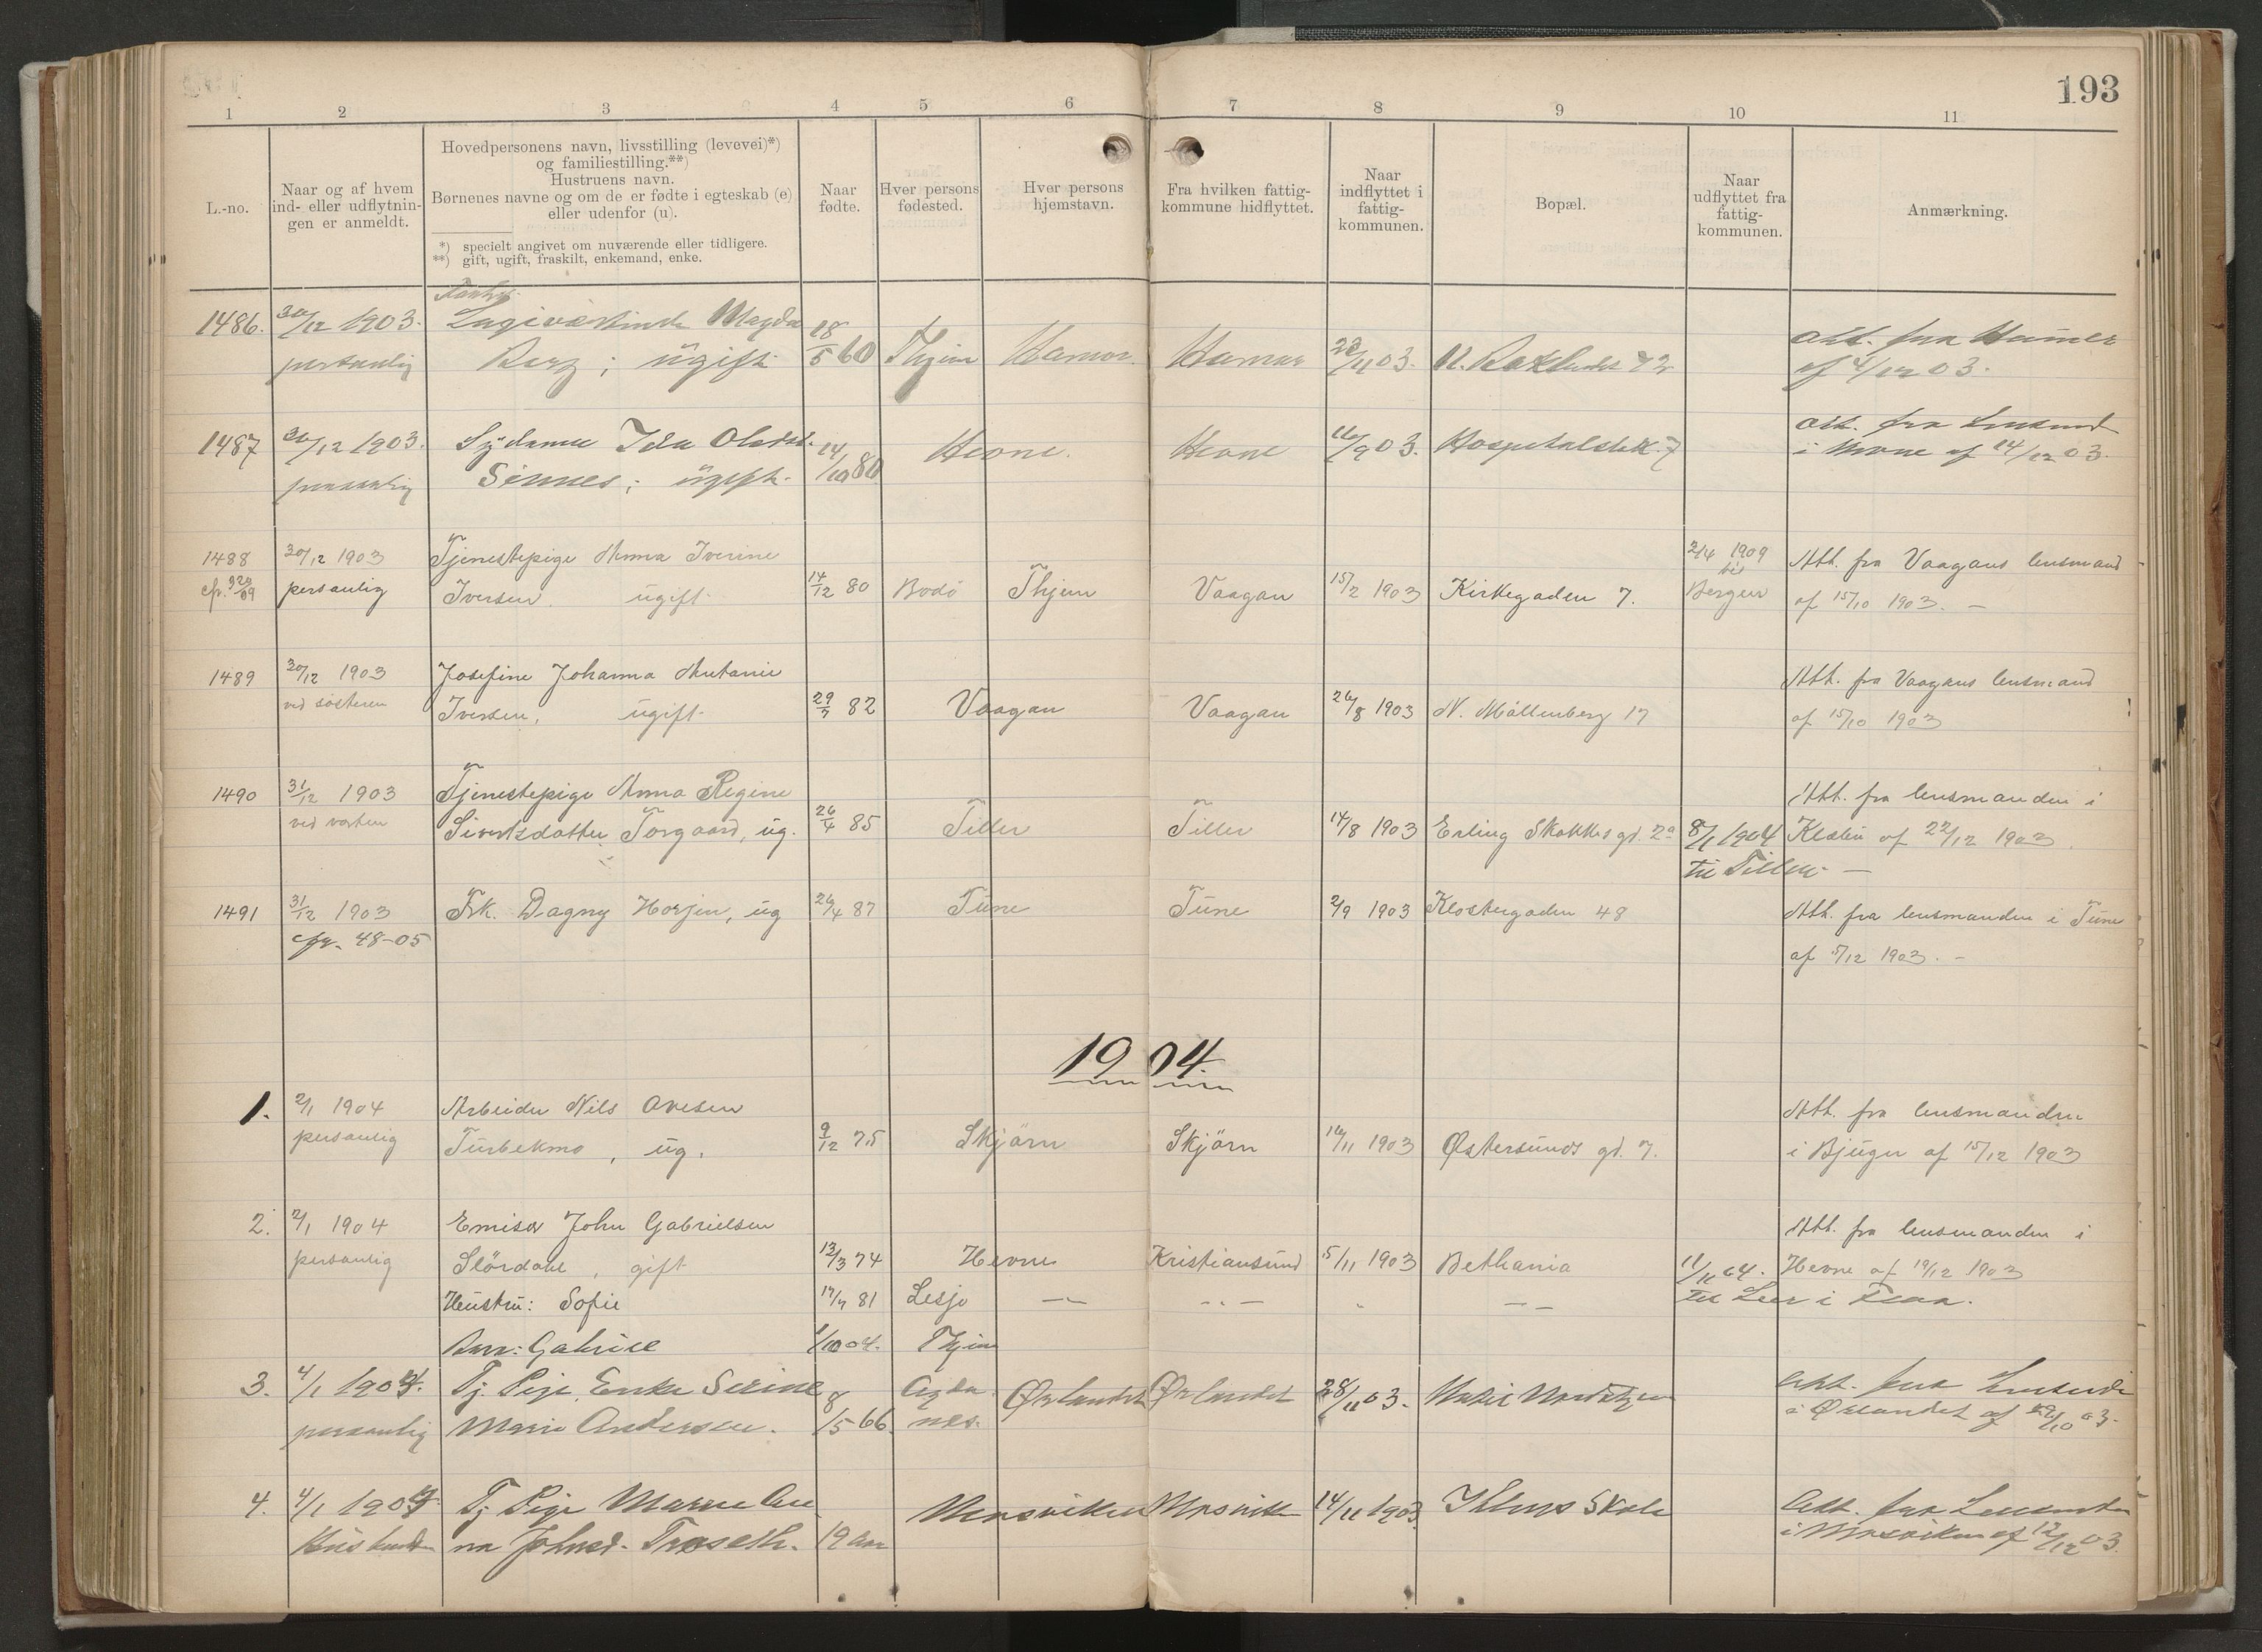 193
1 2 3 4 5 6 7 8 9 10 11
L.-no.
Naar og af hvem
ind- eller udflytnin-
gen er anmeldt.
Hovedpersonens navn, livsstilling (levevei)*)
og familiestilling.**)
Hustruens navn.
Børnenes navne og om de er fødte i egteskab (e)
eller udenfor (u).
*) specielt angivet om nuværende eller tidligere.
**) gift, ugift, fraskilt, enkemand, enke.
Naar
fødte.
Hver persons
fødested.
Hver persons
hjemstavn.
Fra hvilken fattig-
kommune hidflyttet.
Naar
indflyttet i
fattig-
kommunen.
Bopæl.
Naar
udflyttet fra
fattig-
kommunen.
Anmærkning.
1486. 30/12 1903. Magda Att. fra Hamar
personlig ; ugift 18/5 60 Thjem Hamar Hamar 03. af 4/12 03.
1487 30/12 1903. Sydame Ida Olsdat. Att. fra Lensmd
personlig Sinnes; ugift. 14/10 80 Hevne. Hevne 16/9 03. Hospitalsløk. 7 i Hevne af 14/12 03.
1488 30/12 1903 Tjenestepige Anna Iverine 2/4 1909 Att. fra Vaagans lensmand
cfr. 320/09 personlig Iversen, ugift 14/12 80 Bodö Thjem Vaagan 15/2 1903 Kirkegaden 7. til Bergen af 15/10 1903. —
1489 30/12 1903 Josefine Johanna Antanie Att. fra Vaagans lensmand
ved søsteren Iversen, ugift 29/7 82 Vaagan Vaagan 26/8 1903 N. Möllenberg 17 af 15/10 1903
1490 31/12 1903 Tjenestepige Anna Regine Att. fra lensmanden i
ved Sivertsdatter Torgaard, ug. 26/4 85 Tiller Tiller 14/8 1903 Erling Skakkes gd. 2a 8/1 1904 Klæbu af 22/12 1903.
til Tiller —
1491 31/12 1903 Frk. Dagny Horjen, ug 26/4 87 Tune Tune 2/9 1903 Klostergaden 48 Att. fra lensmanden i Tune
cfr. 48-05 af 5/12 1903. —
1904.
1. 2/1 1904 Arbeider Nils Ovesen Att. fra lensmanden
personlig Turbekmo, ug. 9/12 75 Skjörn Skjörn 16/11 1903 Østersunds gd. 7. i Bjugn af 15/12 1903
2. 2/1 1904 Emisær John Gabrielsen Att. fra lensmanden i
personlig Slördahl, gift 13/3 74 Hevne Kristiansund 5/11 1903 Bethania 11/11 04. Hevne af 19/12 1903
Hustru: Sofie 17/7 81 Lesje — — — til Leer i Flaa.
Barn: Gabriel 1/10 04. Thjem
3. 4/1 1904. Tj. Pige, Enke Serine 8/5 66. Agda Ørlandet Ørlandet 28/11 03. Att. fra Lensmd
personlig Marie Andersen. nes. i Ørlandet af 03.
4. 4/1 1904 Tj Pige Maren An Mosviken Mosviken 14/11 1903. Ihlens Skole Att. fra Lensmden
na Johnsd. Trøseth. 19 aar i Mosviken af 12/12 03.